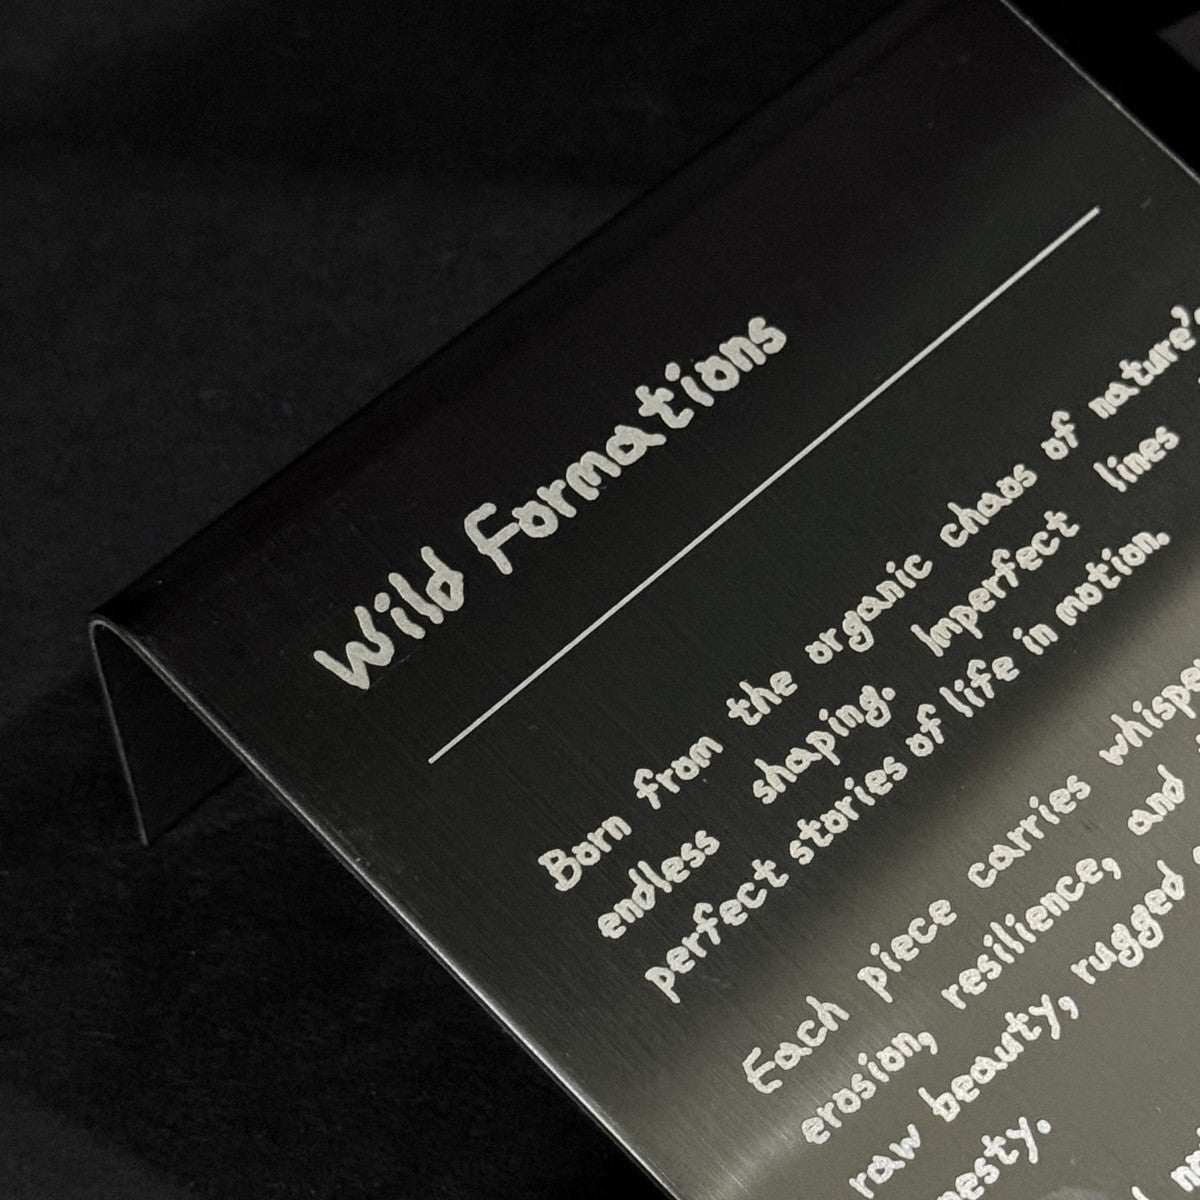 Wild Formations
Born from the organic chaos of nature's
endless shaping. Imperfect lines
perfect stories of life in motion.
Each piece carries
erosion, resilience, and
raw beauty, rugged